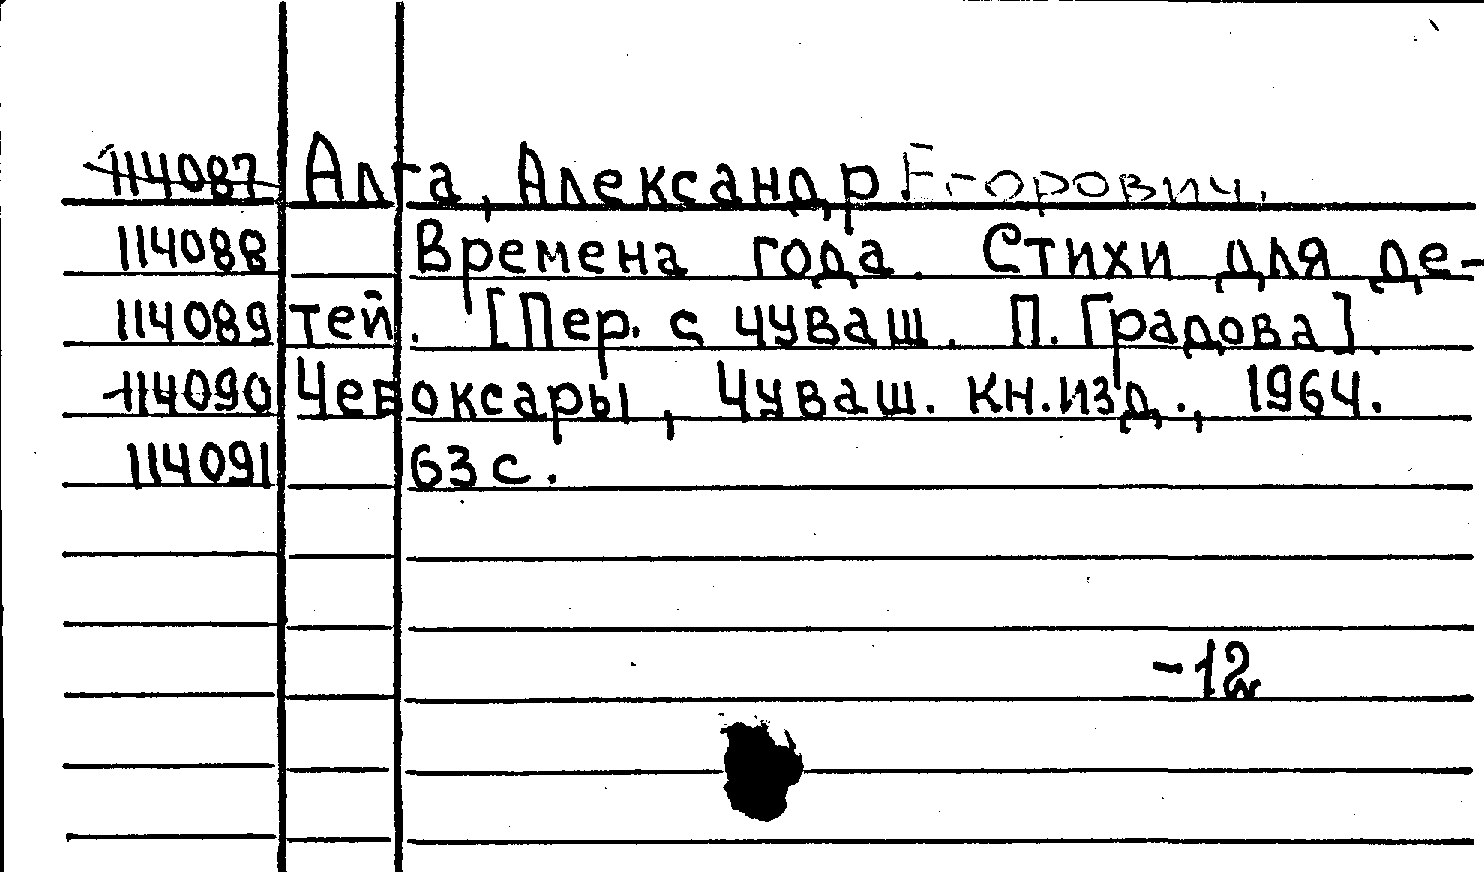 114087 Алга, Александр Егорович.
114088 Времена года. Стихи для де-
114089 тей. [Пер. с чуваш. П. Градова].
114090 Чебоксары, Чуваш. кн.изд., 1964.
114091 63 с.
-12